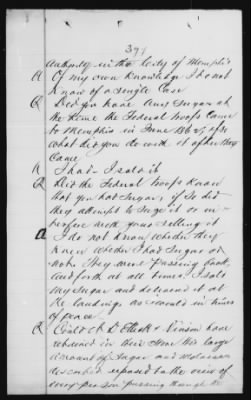 399
Authority in the City of Memphis
A Of my own knowledge I do not
know of a single Case
Q Did you have any Sugar at
the time the Federal troops came
to Memphis in June 1862, if so
what did you do with it after they
Came
A I had I sold it
Q Did the Federal troops know
that you had Sugar, if so did
they attempt to seize it or in-
terfere with your selling it
A I do not know whether they
knew whether I had Sugar or
not. They were passing back
and forth at all times. I sold
my Sugar and delivered it at
the landings as usual in times
of peace.
Q Could C. K. D. &
have
in their Store this large
amount of Sugar and Molasses
exposed to the view of
every person passing through the